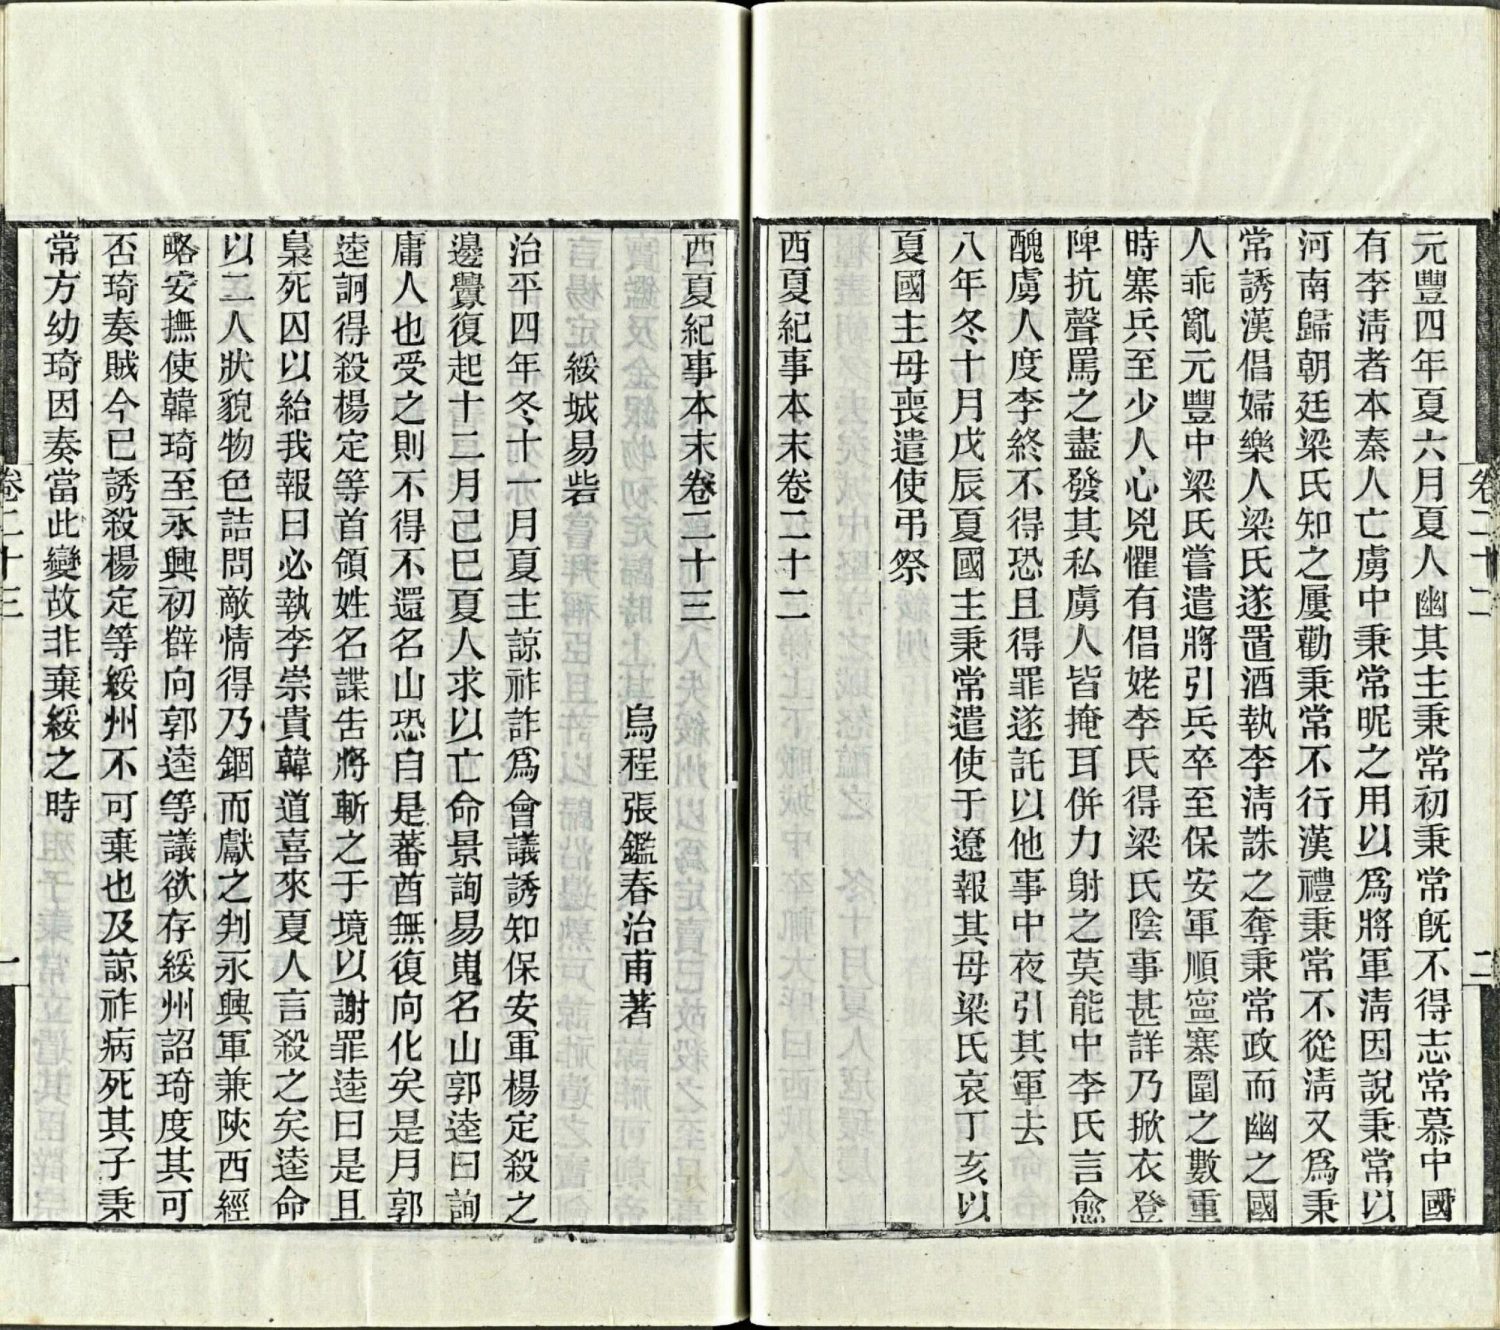 元豐四年夏六月夏人幽其主秉常初秉常旣不得志常慕中國
有李淸者本秦人亡虜中秉常昵之用以爲將軍淸因說秉常以
河南歸朝廷梁氏知之屢勸秉常不行漢禮秉常不從淸又爲秉
常誘漢倡婦樂人梁氏遂置酒執李淸誅之奪秉常政而幽之國
人乖亂元豐中梁氏嘗遣將引兵卒至保安軍順寧寨圍之數重
時寨兵至少人心兇懼有倡姥李氏得梁氏陰事甚詳乃掀衣登
陴抗聲罵之盡發其私虜人皆掩耳併力射之莫能中李氏言愈
醜虜人度李終不得恐且得罪遂託以他事中夜引其軍去
八年冬十月戊辰夏國主秉常遣使于遼報其母梁氏哀丁亥以
夏國主母喪遣使弔祭
西夏紀事本末卷二十二
卷二十二
二
西夏紀事本末卷二十三
烏程張鑑春治甫著
綏城易砦
治平四年冬十一月夏主諒祚詐爲會議誘知保安軍楊定殺之
邊釁復起十二月己巳夏人求以亡命景詢易嵬名山郭逵曰詢
庸人也受之則不得不還名山恐自是蕃酋無復向化矣是月郭
逵詗得殺楊定等首領姓名諜告將斬之于境以謝罪逵曰是且
梟死囚以紿我報曰必執李崇貴韓道喜來夏人言殺之矣逵命
以二人狀貌物色詰問敵情得乃錮而獻之判永興軍兼陝西經
略安撫使韓琦至永興初辭向郭逵等議欲存綏州詔琦度其可
否琦奏賊今已誘殺楊定等綏州不可棄也及諒祚病死其子秉
常方幼琦因奏當此變故非棄綏之時
卷二十三
一